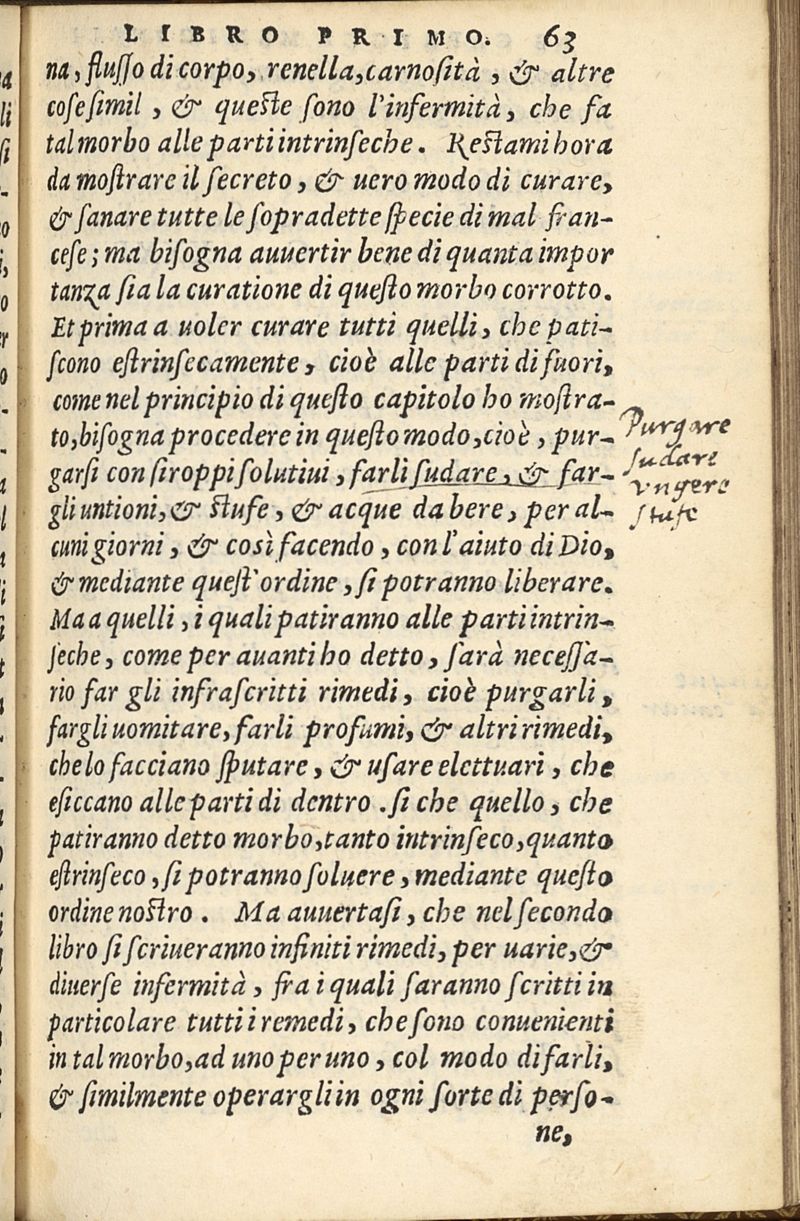 LIBRO PRIMO. 63
na, flusso di corpo, renella, carnosità, & altre
cose simil, & queste sono l'infermità, che fa
tal morbo alle parti intrinseche. Restami hora
da mostrare il secreto, & uero modo di curare,
& sanare tutte le sopradette specie di mal fran-
cese; ma bisogna auuertir bene di quanta impor
tanza sia la curatione di questo morbo corrotto.
Et prima a uoler curare tutti quelli, che pati-
scono estrinsecamente, cioè alle parti di fuori,
come nel principio di questo capitolo ho mostra-
to, bisogna procedere in questo modo, cioè, pur-
garsi con siroppi solutiui, farli sudare, & far-
gli untioni, & stufe, & acque da bere, per al-
cuni giorni, & così facendo, con l'aiuto di Dio,
& mediante quest'ordine, si potranno liberare.
Ma a quelli, i quali patiranno alle parti intrin-
seche, come per auanti ho detto, sarà necessa-
rio far gli infrascritti rimedi, cioè purgarli,
fargli uomitare, farli profumi, & altri rimedi,
che lo facciano sputare, & usare elettuari, che
esiccano alle parti di dentro. si che quello, che
patiranno detto morbo, tanto intrinseco, quanto
estrinseco, si potranno soluere, mediante questo
ordine nostro. Ma auuertasi, che nel secondo
libro si scriueranno infiniti rimedi, per uarie, &
diuerse infermità, fra i quali saranno scritti in
particolare tutti i remedi, che sono conuenienti
in tal morbo, ad uno per uno, col modo di farli,
& similmente operargli in ogni sorte di perso-
ne,
Purgare
sudare
vngere
stufe